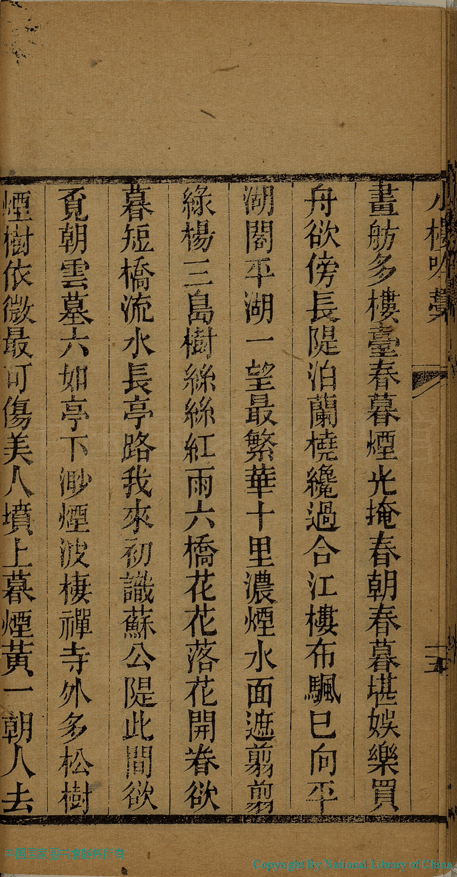 小樓吟藁
十五
畫舫多樓臺春暮煙光掩春朝春暮堪娛樂買
舟欲傍長隄泊蘭橈纔過合江樓布颿已向平
湖閣平湖一望最繁華十里濃煙水面遮翦翦
綠楊三島樹絲絲紅雨六橋花花落花開春欲
暮短橋流水長亭路我來初識蘇公隄此間欲
覔朝雲墓六如亭下渺煙波棲禪寺外多松樹
煙樹依微最可傷美人墳上暮煙黃一朝人去
中國國家圖書館
Copyright By National Library of China